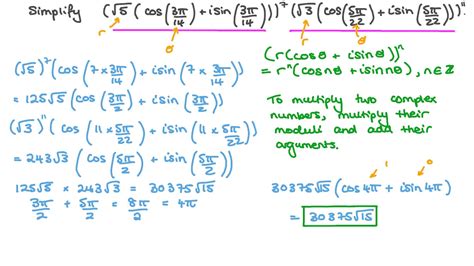 Simplify (√5 (cos(3π/14) + isin(3π/14)))⁷ (√3 (cos(5π/22) + isin(5π/22)))¹¹
r θ r θ
(√5)⁷ (cos(7 × 3π/14) + isin(7 × 3π/14))
= 125√5 (cos(3π/2) + isin(3π/2))
(√3)¹¹ (cos(11 × 5π/22) + isin(11 × 5π/22))
= 243√3 (cos(5π/2) + isin(5π/2))
125√5 × 243√3 = 30375√15
3π/2 + 5π/2 = 8π/2 = 4π
(r(cosθ + isinθ))ⁿ
= rⁿ(cosnθ + isinnθ), n∈ℤ
To multiply two complex
numbers, multiply their
moduli and add their
arguments.
1 0
30375√15 (cos4π + isin4π)
= 30375√15